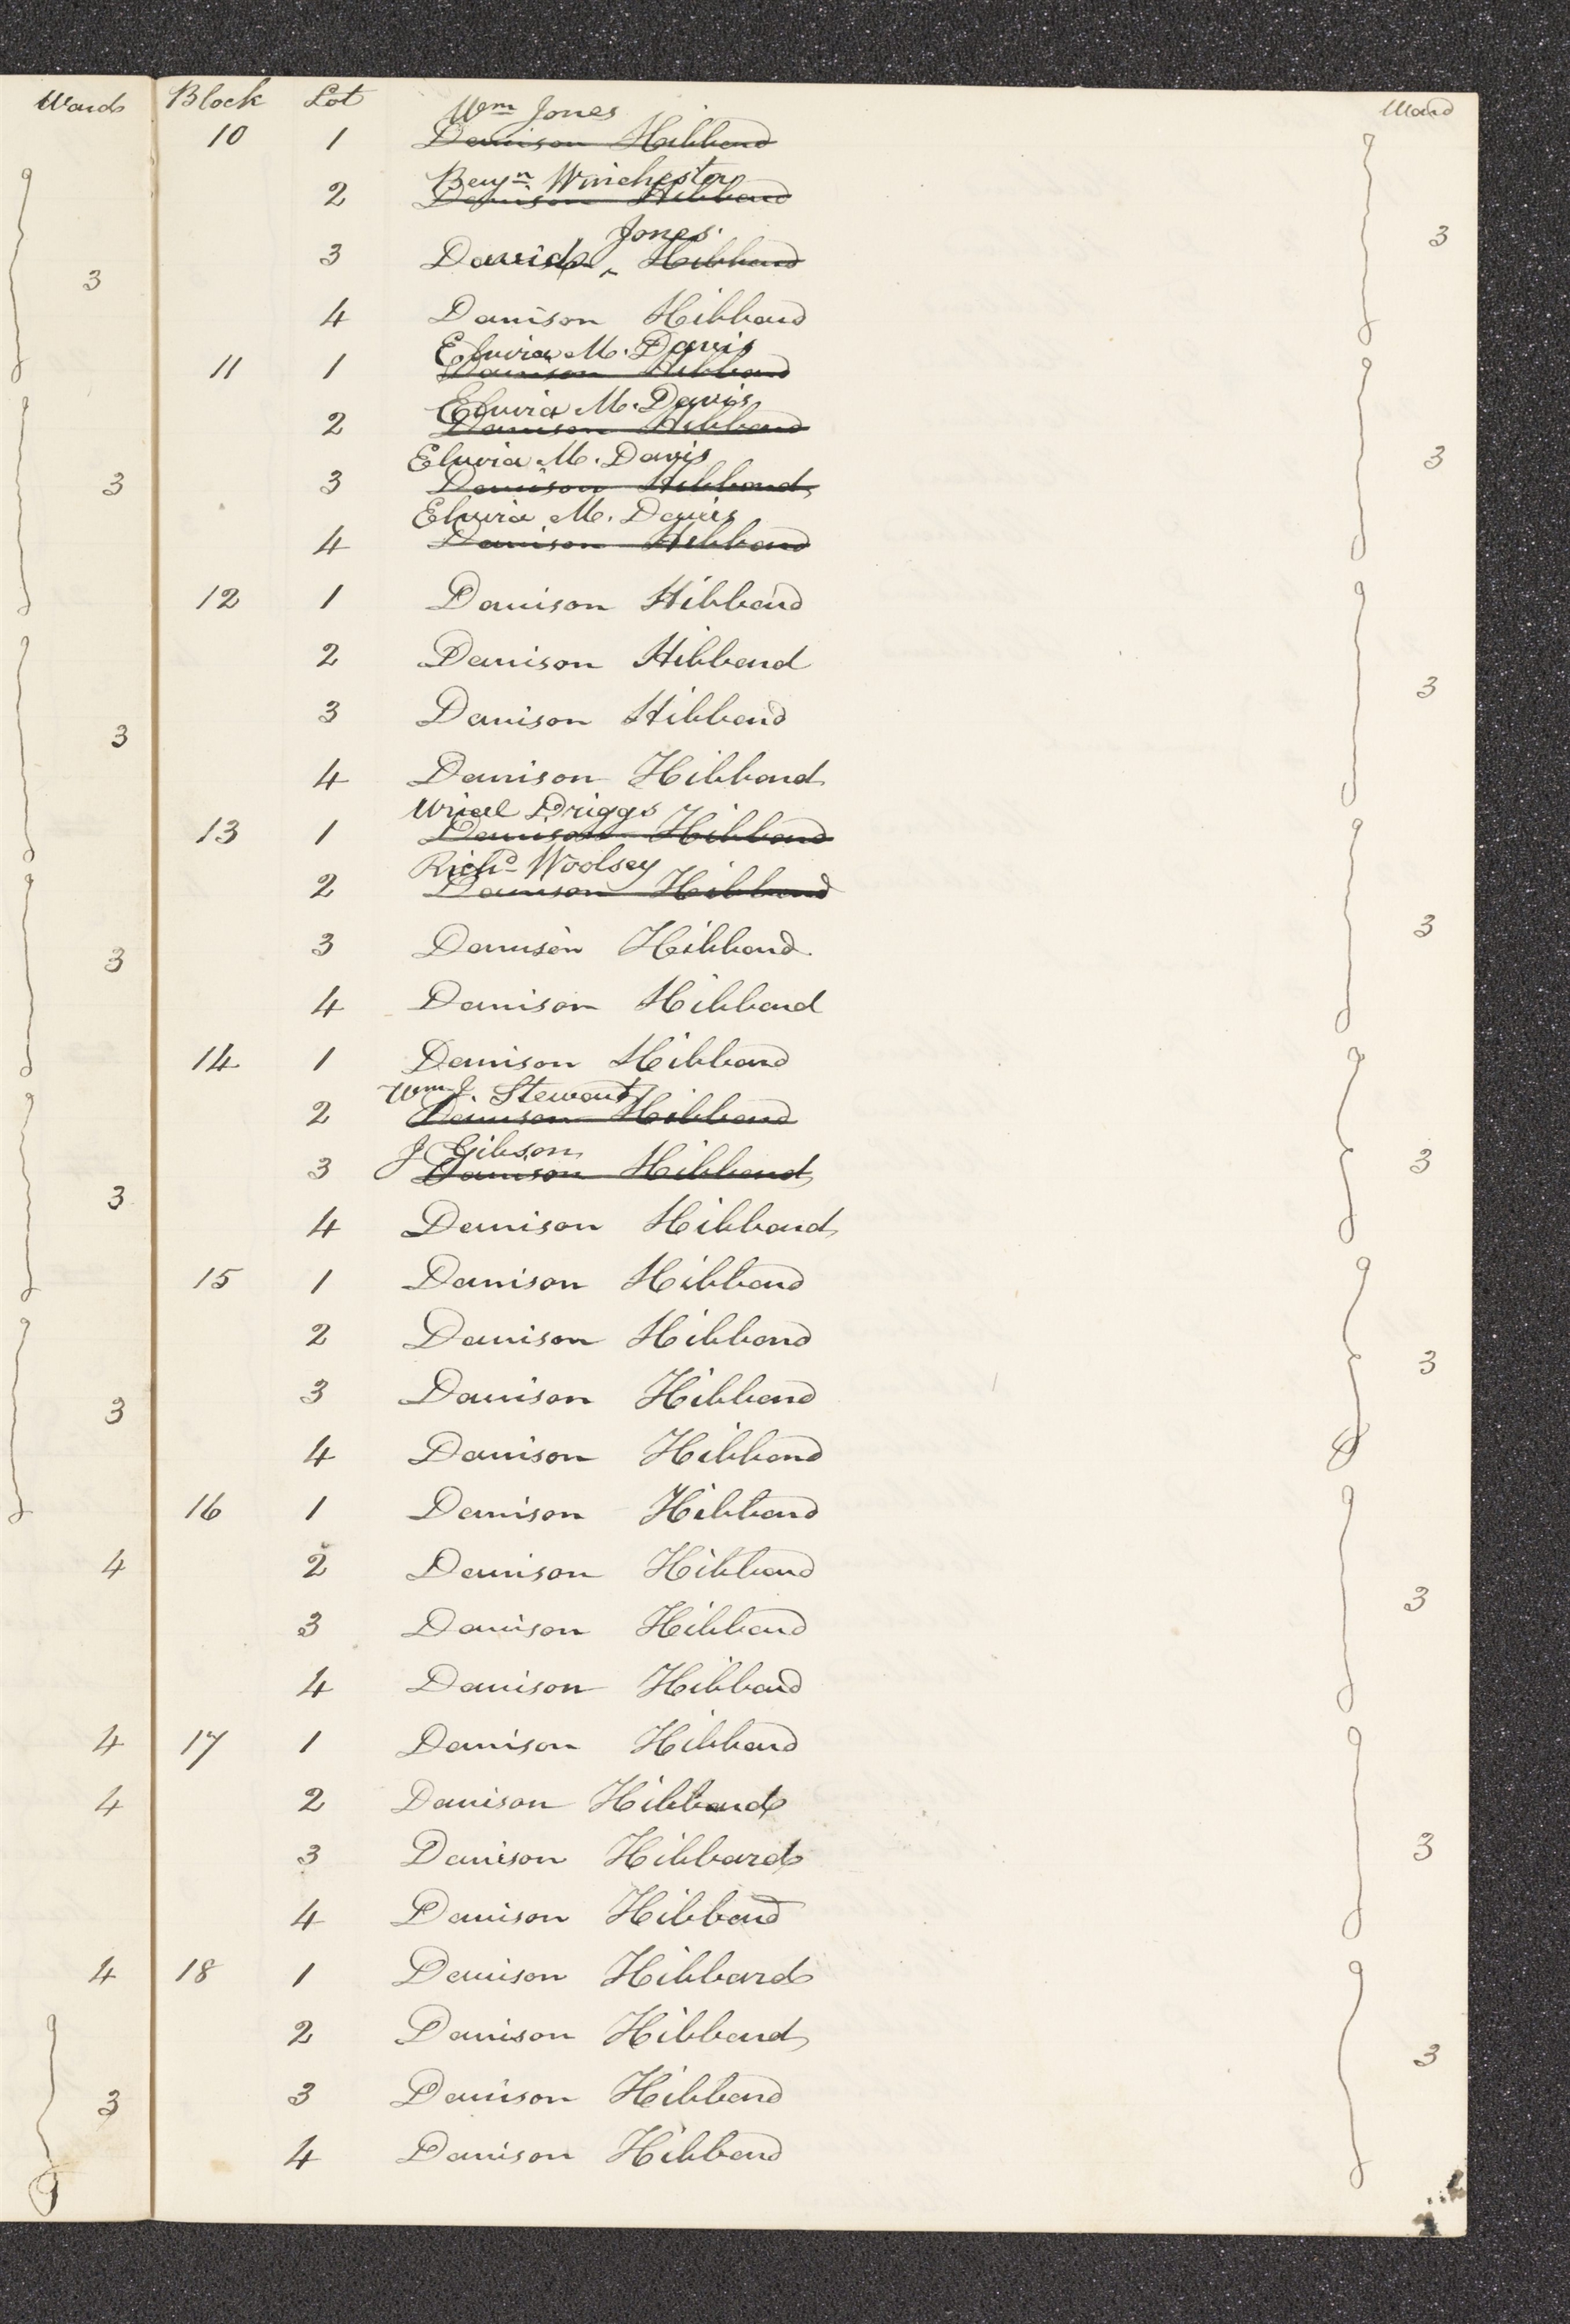 Wards Block Lot Ward
Wm Jones
10 1 Davison Hibbard
Benjn. Winchester
2 Davison Hibbard
Jones
3 David ‸ Hibbard
3
3
4 Davison Hibbard
Elvira M. Davis
11 1 Davison Hibbard
Elvira M. Davis
2 Davison Hibbard
Elvira M. Davis
3 3 Davison Hibbard 3
Elvira M. Davis
4 Davison Hibbard
12 1 Davison Hibbard
2 Davison Hibbard
3 Davison Hibbard 3
3
4 Davison Hibbard
Uriel Driggs
13 1 Davison Hibbard
Richd Woolsey
2 Davison Hibbard
3 Davison Hibbard 3
3
4 Davison Hibbard
14 1 Davison Hibbard
Wm J. Stewart
2 Davison Hibbard
J Gibson
3 Davison Hibbard 3
3
4 Davison Hibbard
15 1 Davison Hibbard
2 Davison Hibbard
3
3 3 Davison Hibbard
4 Davison Hibbard
16 1 Davison Hibbard
4 2 Davison Hibbard
3 Davison Hibbard 3
4 Davison Hibbard
4 17 1 Davison Hibbard
4 2 Davison Hibbard
3 Davison Hibbard 3
4 Davison Hibbard
4 18 1 Davison Hibbard
2 Davison Hibbard
3
3 3 Davison Hibbard
4 Davison Hibbard